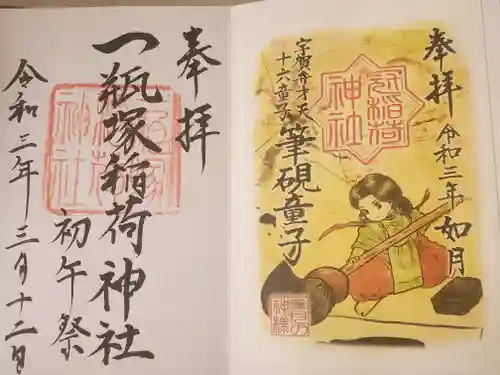 奉拝
令和三年如月
冠稲荷神社
宇賀弁才天
十六童子
筆硯童子
奉拝
一瓶塚稲荷神社
初午祭
令和三年三月十二日